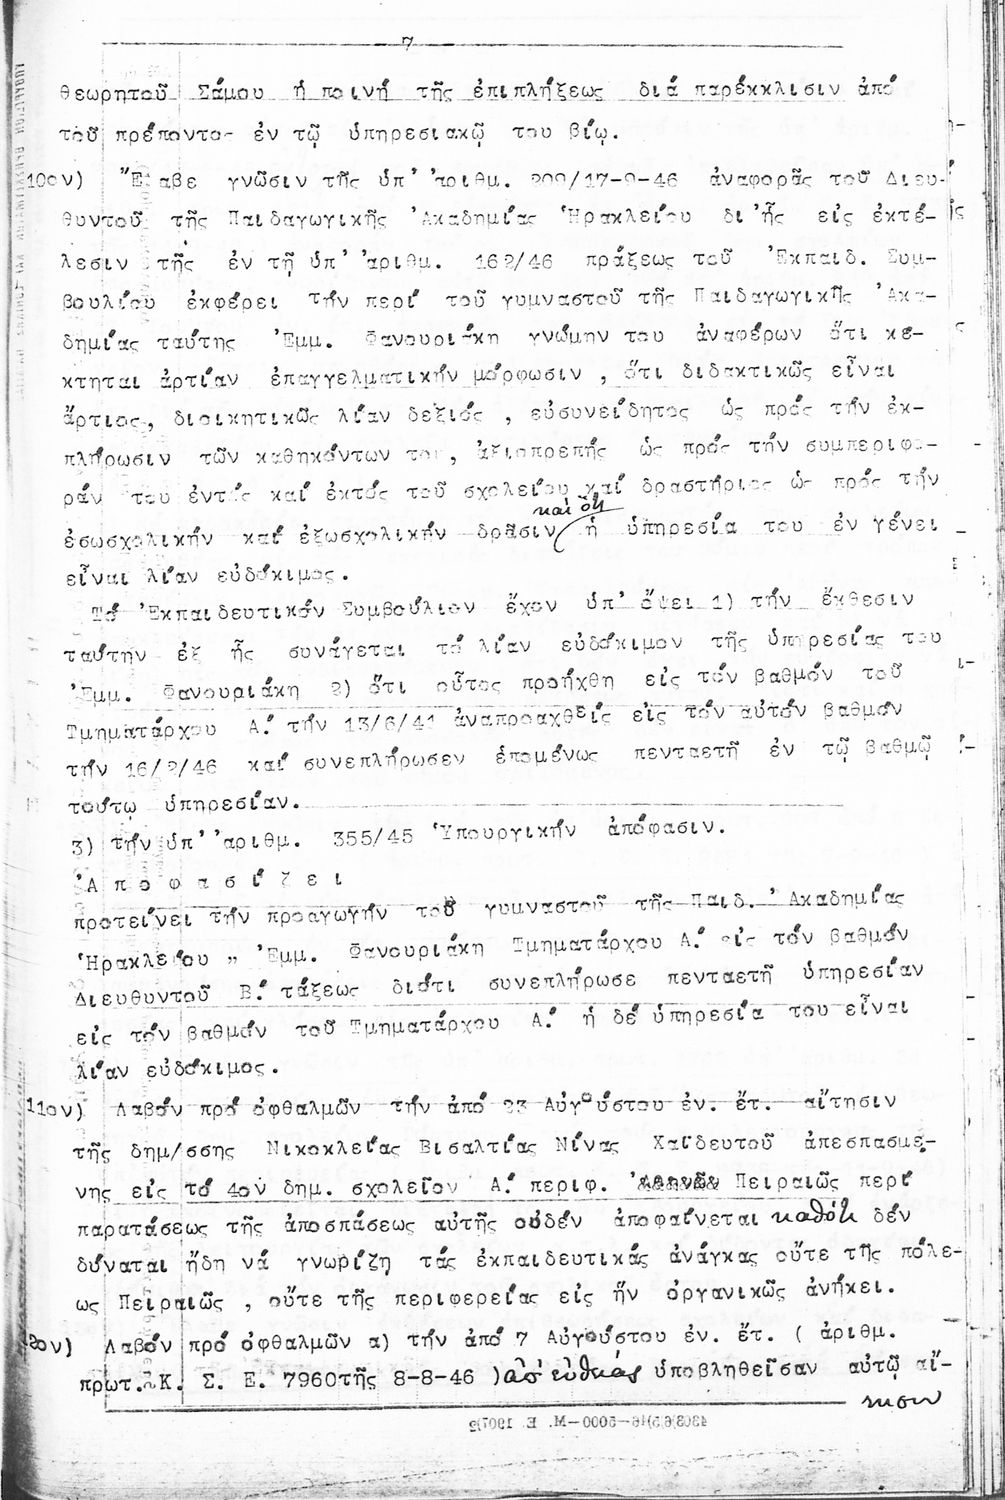 7
θεωρητοῦ Σάμου ἡ ποινή τῆς ἐπιπλήξεως διά παρέκκλισιν ἀπό
τοῦ πρέποντος ἐν τῷ ὑπηρεσιακῷ του βίῳ.
10ον) Ἔλαβε γνῶσιν τῆς ὑπ' ἀριθμ. 209/17-9-46 ἀναφορᾶς τοῦ Διευ-
θυντοῦ τῆς Παιδαγωγικῆς Ἀκαδημίας Ἡρακλείου δι'ἧς εἰς ἐκτέ-
λεσιν τῆς ἐν τῇ ὑπ' ἀριθμ. 162/46 πράξεως τοῦ Ἐκπαιδ. Συμ-
βουλίου ἐκφέρει τήν περί τοῦ γυμναστοῦ τῆς Παιδαγωγικῆς Ἀκα-
δημίας ταύτης Ἐμμ. Φανουριάκη γνώμην του ἀναφέρων ὅτι κέ-
κτηται ἀρτίαν ἐπαγγελματικήν μόρφωσιν , ὅτι διδακτικῶς εἶναι
ἄρτιος, διοικητικῶς λίαν δεξιός , εὐσυνείδητος ὡς πρός τήν ἐκ-
πλήρωσιν τῶν καθηκόντων του, ἀξιοπρεπής ὡς πρός τήν συμπεριφο-
ράν του ἐντός καί ἐκτός τοῦ σχολείου καί δραστήριος ὡς πρός τήν
καί ὅτι
ἐσωσχολικήν καί ἐξωσχολικήν δρᾶσιν ἡ ὑπηρεσία του ἐν γένει
εἶναι λίαν εὐδόκιμος.
Τό Ἐκπαιδευτικόν Συμβούλιον ἔχον ὑπ' ὄψει 1) τήν ἔκθεσιν
ταύτην ἐξ ἧς συνάγεται τό λίαν εὐδόκιμον τῆς ὑπηρεσίας του
Ἐμμ. Φανουριάκη 2) ὅτι οὗτος προήχθη εἰς τόν βαθμόν τοῦ
Τμηματάρχου Α.' τήν 13/6/41 ἀναπροαχθείς εἰς τόν αὐτόν βαθμόν
τήν 16/2/46 καί συνεπλήρωσεν ἑπομένως πενταετῆ ἐν τῷ βαθμῷ
τούτῳ ὑπηρεσίαν.
3) τήν ὑπ' ἀριθμ. 355/45 Ὑπουργικήν ἀπόφασιν.
Ἀ π ο φ α σ ί ζ ε ι
προτείνει τήν προαγωγήν τοῦ γυμναστοῦ τῆς Παιδ. Ἀκαδημίας
Ἡρακλείου „ Ἐμμ. Φανουριάκη Τμηματάρχου Α.' εἰς τόν βαθμόν
Διευθυντοῦ Β.' τάξεως διότι συνεπλήρωσε πενταετῆ ὑπηρεσίαν
εἰς τόν βαθμόν τοῦ Τμηματάρχου Α.' ἡ δέ ὑπηρεσία του εἶναι
λίαν εὐδόκιμος.
11ον) Λαβόν πρό ὀφθαλμῶν τήν ἀπό 23 Αὐγούστου ἐν. ἔτ. αἴτησιν
τῆς δημ/σσης Νικοκλείας Βισαλτίας Νίνας Χαϊδευτοῦ ἀπεσπασμέ-
νης εἰς τό 4ον δημ. σχολεῖον Α.' περιφ. Πειραιῶς περί
παρατάσεως τῆς ἀποσπάσεως αὐτῆς οὐδέν ἀποφαίνεται καθότι δέν
δύναται ἤδη νά γνωρίζῃ τάς ἐκπαιδευτικάς ἀνάγκας οὔτε τῆς πόλε-
ως Πειραιῶς , οὔτε τῆς περιφερείας εἰς ἥν ὀργανικῶς ἀνήκει.
12ον) Λαβόν πρό ὀφθαλμῶν α) τήν ἀπό 7 Αὐγούστου ἐν. ἔτ. ( ἀριθμ.
πρωτ. Κ. Σ. Ε. 7960τῆς 8-8-46 )ἀπ' εὐθείας ὑποβληθεῖσαν αὐτῷ αἴ-
τησιν